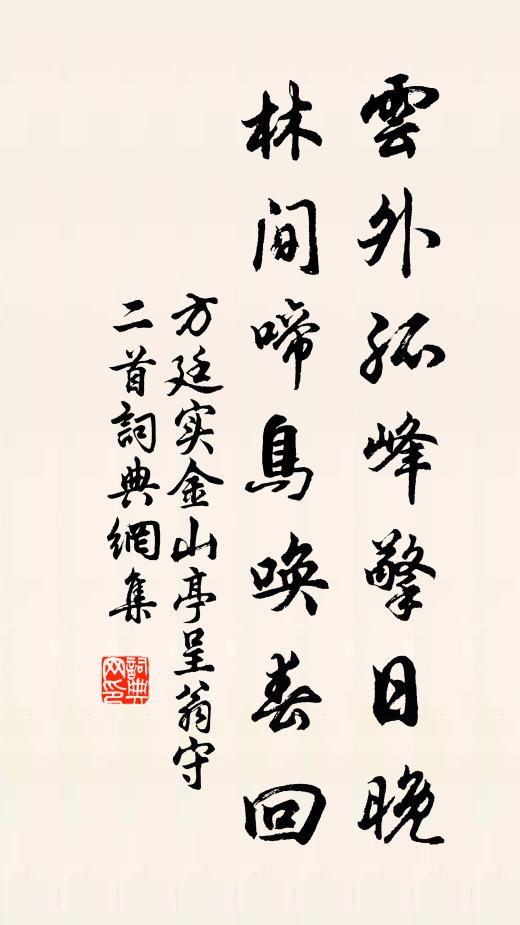 雲外孤峰擎日晚
林間啼鳥喚春回
方廷实金山亭呈翁守
二首詞典網集
詞典網印